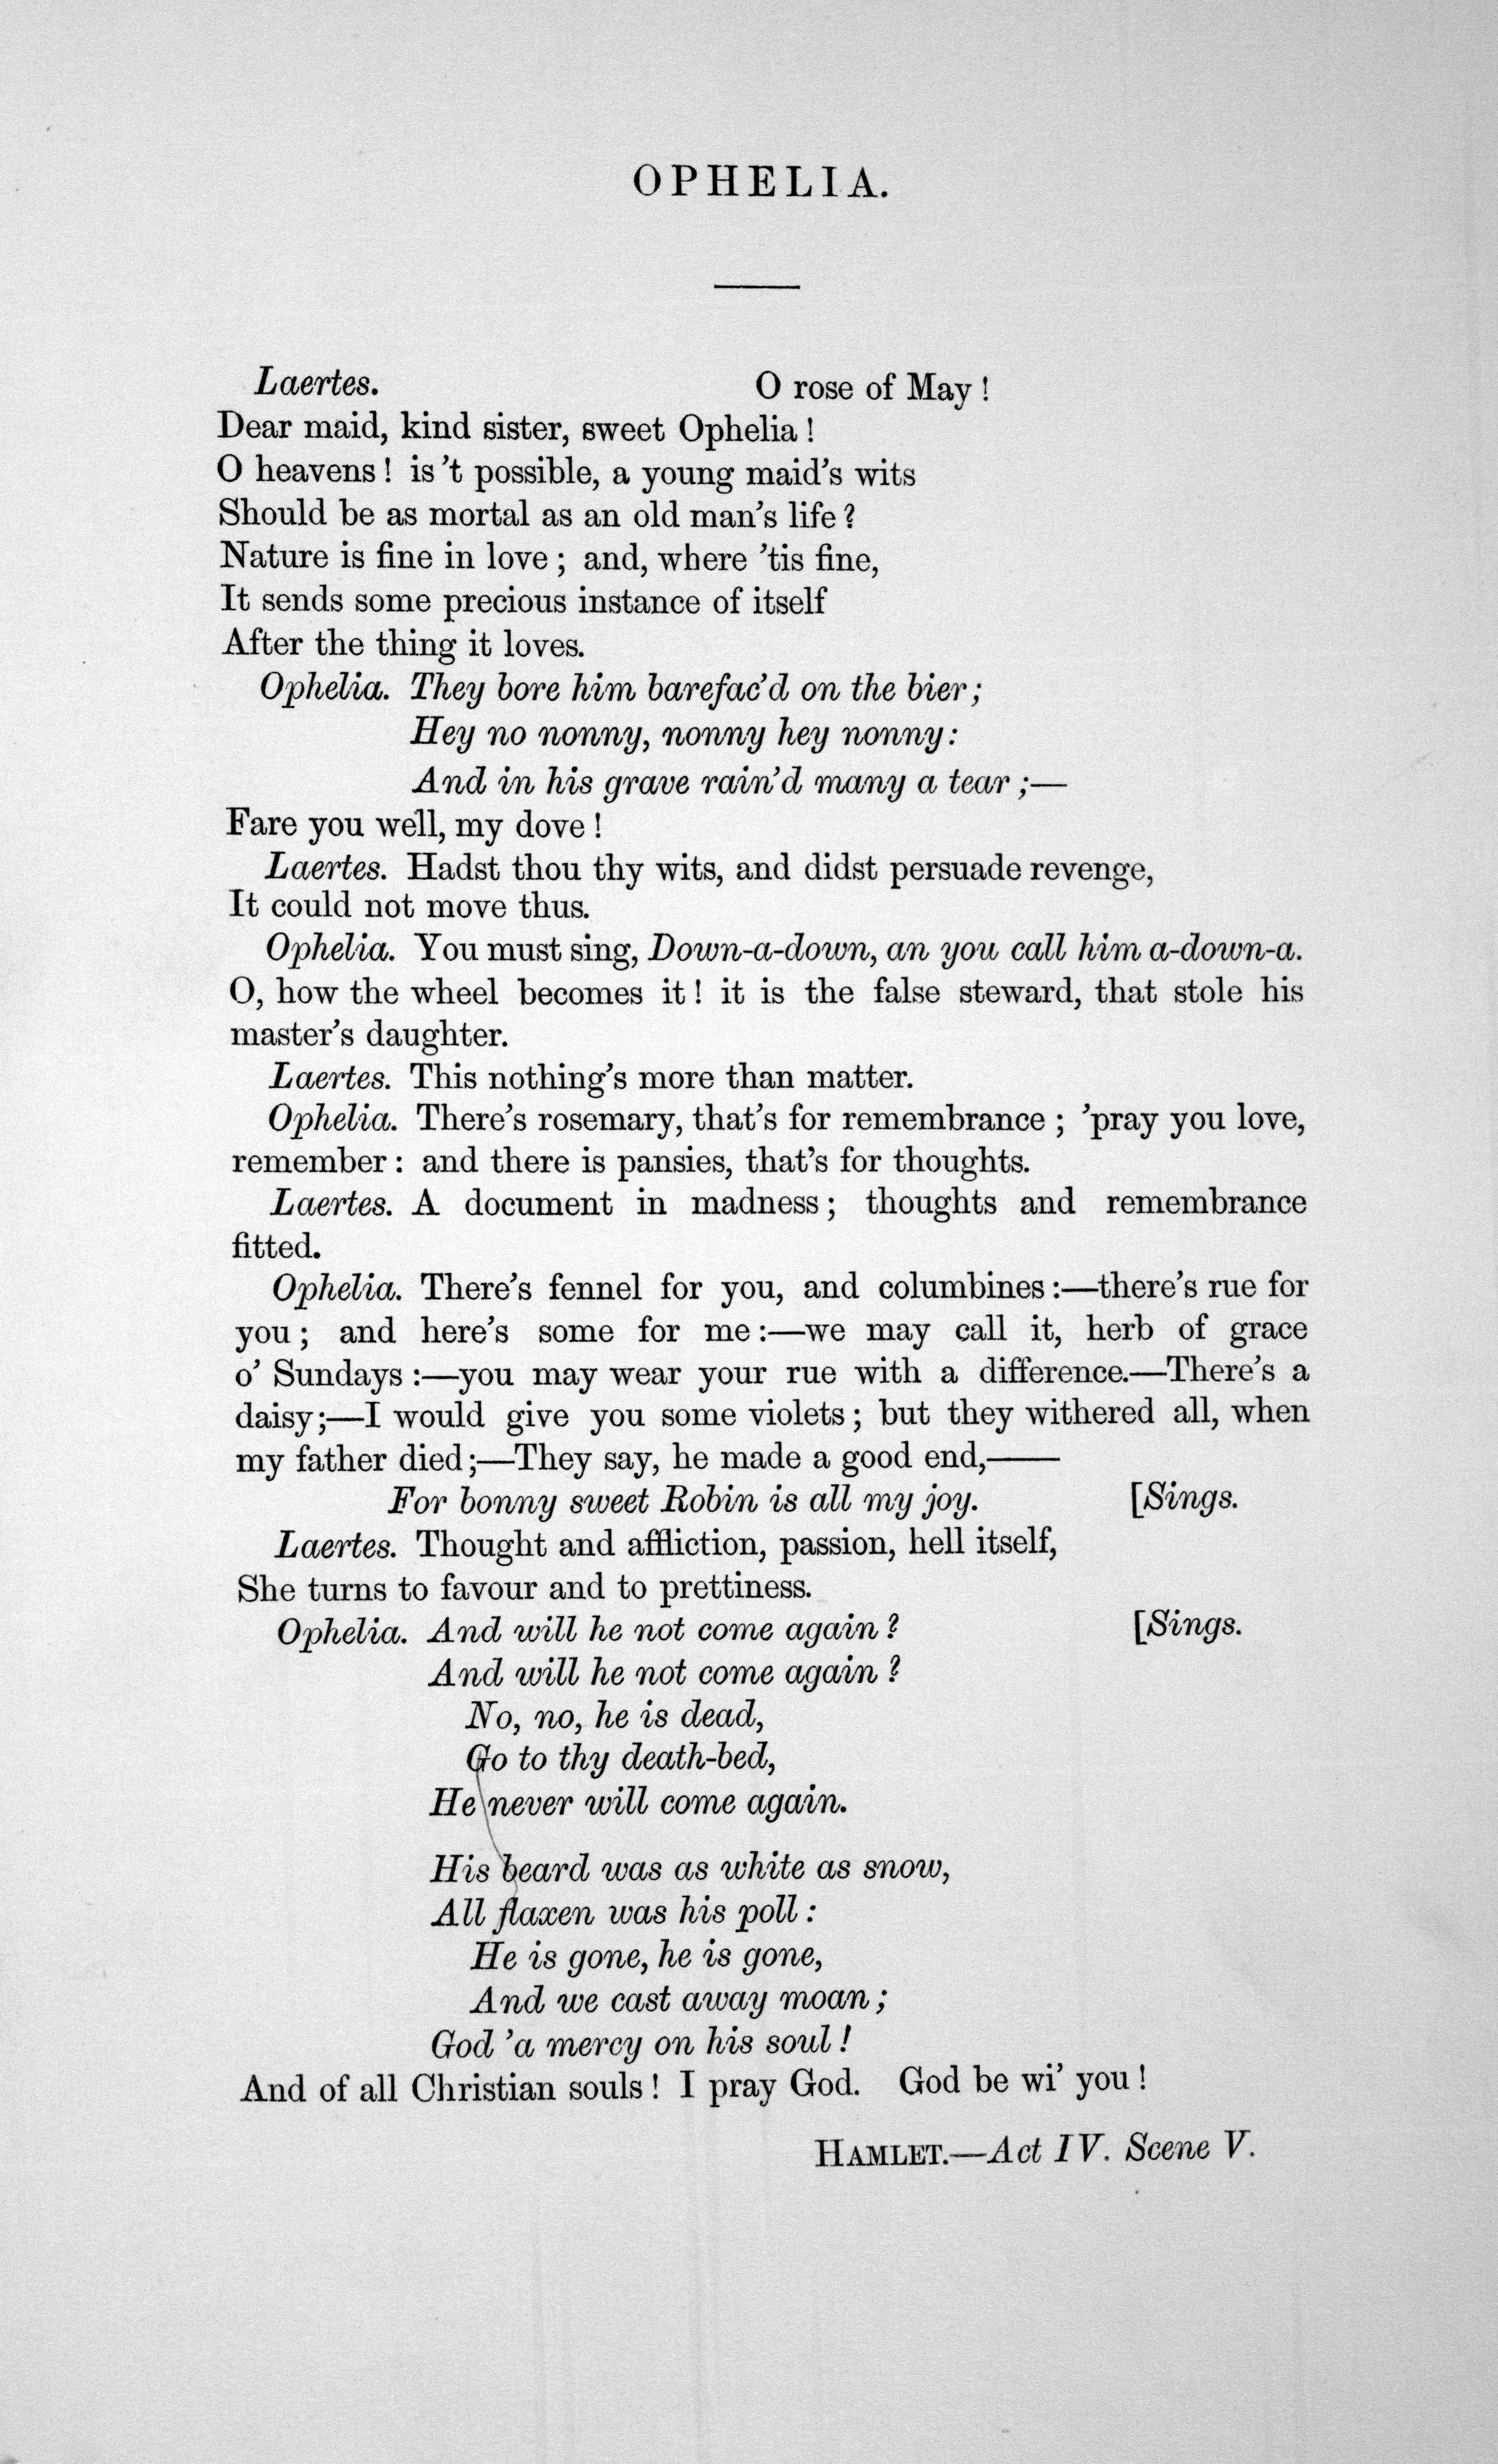 OPHELIA.
Laertes. O rose of May !
Dear maid, kind sister, sweet Ophelia !
O heavens ! is 't possible, a young maid's wits
Should be as mortal as an old man's life ?
Nature is fine in love ; and, where 'tis fine,
It sends some precious instance of itself
After the thing it loves.
Ophelia. They bore him barefac'd on the bier ;
Hey no nonny, nonny hey nonny :
And in his grave rain'd many a tear ;—
Fare you well, my dove !
Laertes. Hadst thou thy wits, and didst persuade revenge,
It could not move thus.
Ophelia. You must sing, Down-a-down, an you call him a-down-a.
O, how the wheel becomes it ! it is the false steward, that stole his
master's daughter.
Laertes. This nothing's more than matter.
Ophelia. There's rosemary, that's for remembrance ; 'pray you love,
remember : and there is pansies, that's for thoughts.
Laertes. A document in madness ; thoughts and remembrance
fitted.
Ophelia. There's fennel for you, and columbines :—there's rue for
you ; and here's some for me :—we may call it, herb of grace
o' Sundays :—you may wear your rue with a difference.—There's a
daisy ;—I would give you some violets ; but they withered all, when
my father died ;—They say, he made a good end,——
For bonny sweet Robin is all my joy. [Sings.
Laertes. Thought and affliction, passion, hell itself,
She turns to favour and to prettiness.
Ophelia. And will he not come again ? [Sings.
And will he not come again ?
No, no, he is dead,
Go to thy death-bed,
He never will come again.
His beard was as white as snow,
All flaxen was his poll :
He is gone, he is gone,
And we cast away moan ;
God 'a mercy on his soul !
And of all Christian souls ! I pray God. God be wi' you !
HAMLET.—Act IV. Scene V.